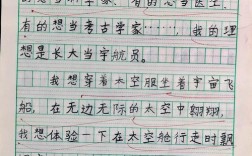 的想当科学家、有的想当医生、
有的想当考古学家……，我的理
想是长大当宇航员。
我想穿着太空服坐着宇宙飞
船，在无边无际的太空中翱翔，
我想体验一下在太空舱行走时飘